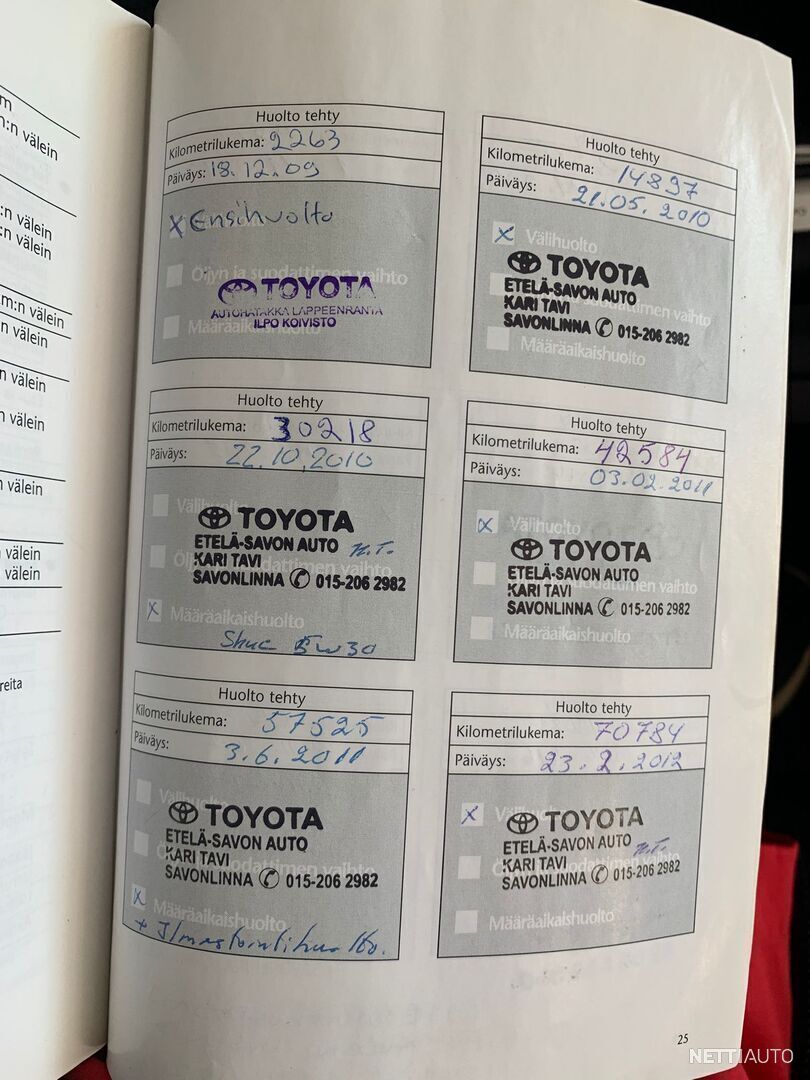 m
n:n välein
:n välein
:n välein
m:n välein
n välein
n välein
n välein
n välein
välein
välein
reita
Huolto tehty
Kilometrilukema: 2263
Päiväys: 18.12.09
x Ensihuolto
Öljyn ja suodattimen vaihto
TOYOTA
AUTOHATAKKA LAPPEENRANTA
ILPO KOIVISTO
Määräaikaishuolto
Huolto tehty
Kilometrilukema: 14897
Päiväys: 21.05.2010
x Välihuolto
TOYOTA
ETELÄ-SAVON AUTO
KARI TAVI
SAVONLINNA 015-206 2982
suodattimen vaihto
Määräaikaishuolto
Huolto tehty
Kilometrilukema: 30218
Päiväys: 22.10.2010
Välihuolto
TOYOTA
ETELÄ-SAVON AUTO
KARI TAVI
SAVONLINNA 015-206 2982
suodattimen vaihto
x Määräaikaishuolto
5w30
Huolto tehty
Kilometrilukema: 42584
Päiväys: 03.02.2011
x Välihuolto
TOYOTA
ETELÄ-SAVON AUTO
KARI TAVI
SAVONLINNA 015-206 2982
suodattimen vaihto
Määräaikaishuolto
Huolto tehty
Kilometrilukema: 57525
Päiväys: 3.6.2011
Välihuolto
TOYOTA
ETELÄ-SAVON AUTO
KARI TAVI
SAVONLINNA 015-206 2982
suodattimen vaihto
x Määräaikaishuolto
+ Ilmastointihuolto.
Huolto tehty
Kilometrilukema: 70784
Päiväys: 23.2.2012
x Välihuolto
TOYOTA
ETELÄ-SAVON AUTO
KARI TAVI
SAVONLINNA 015-206 2982
suodattimen vaihto
Määräaikaishuolto
25
NETTIAUTO